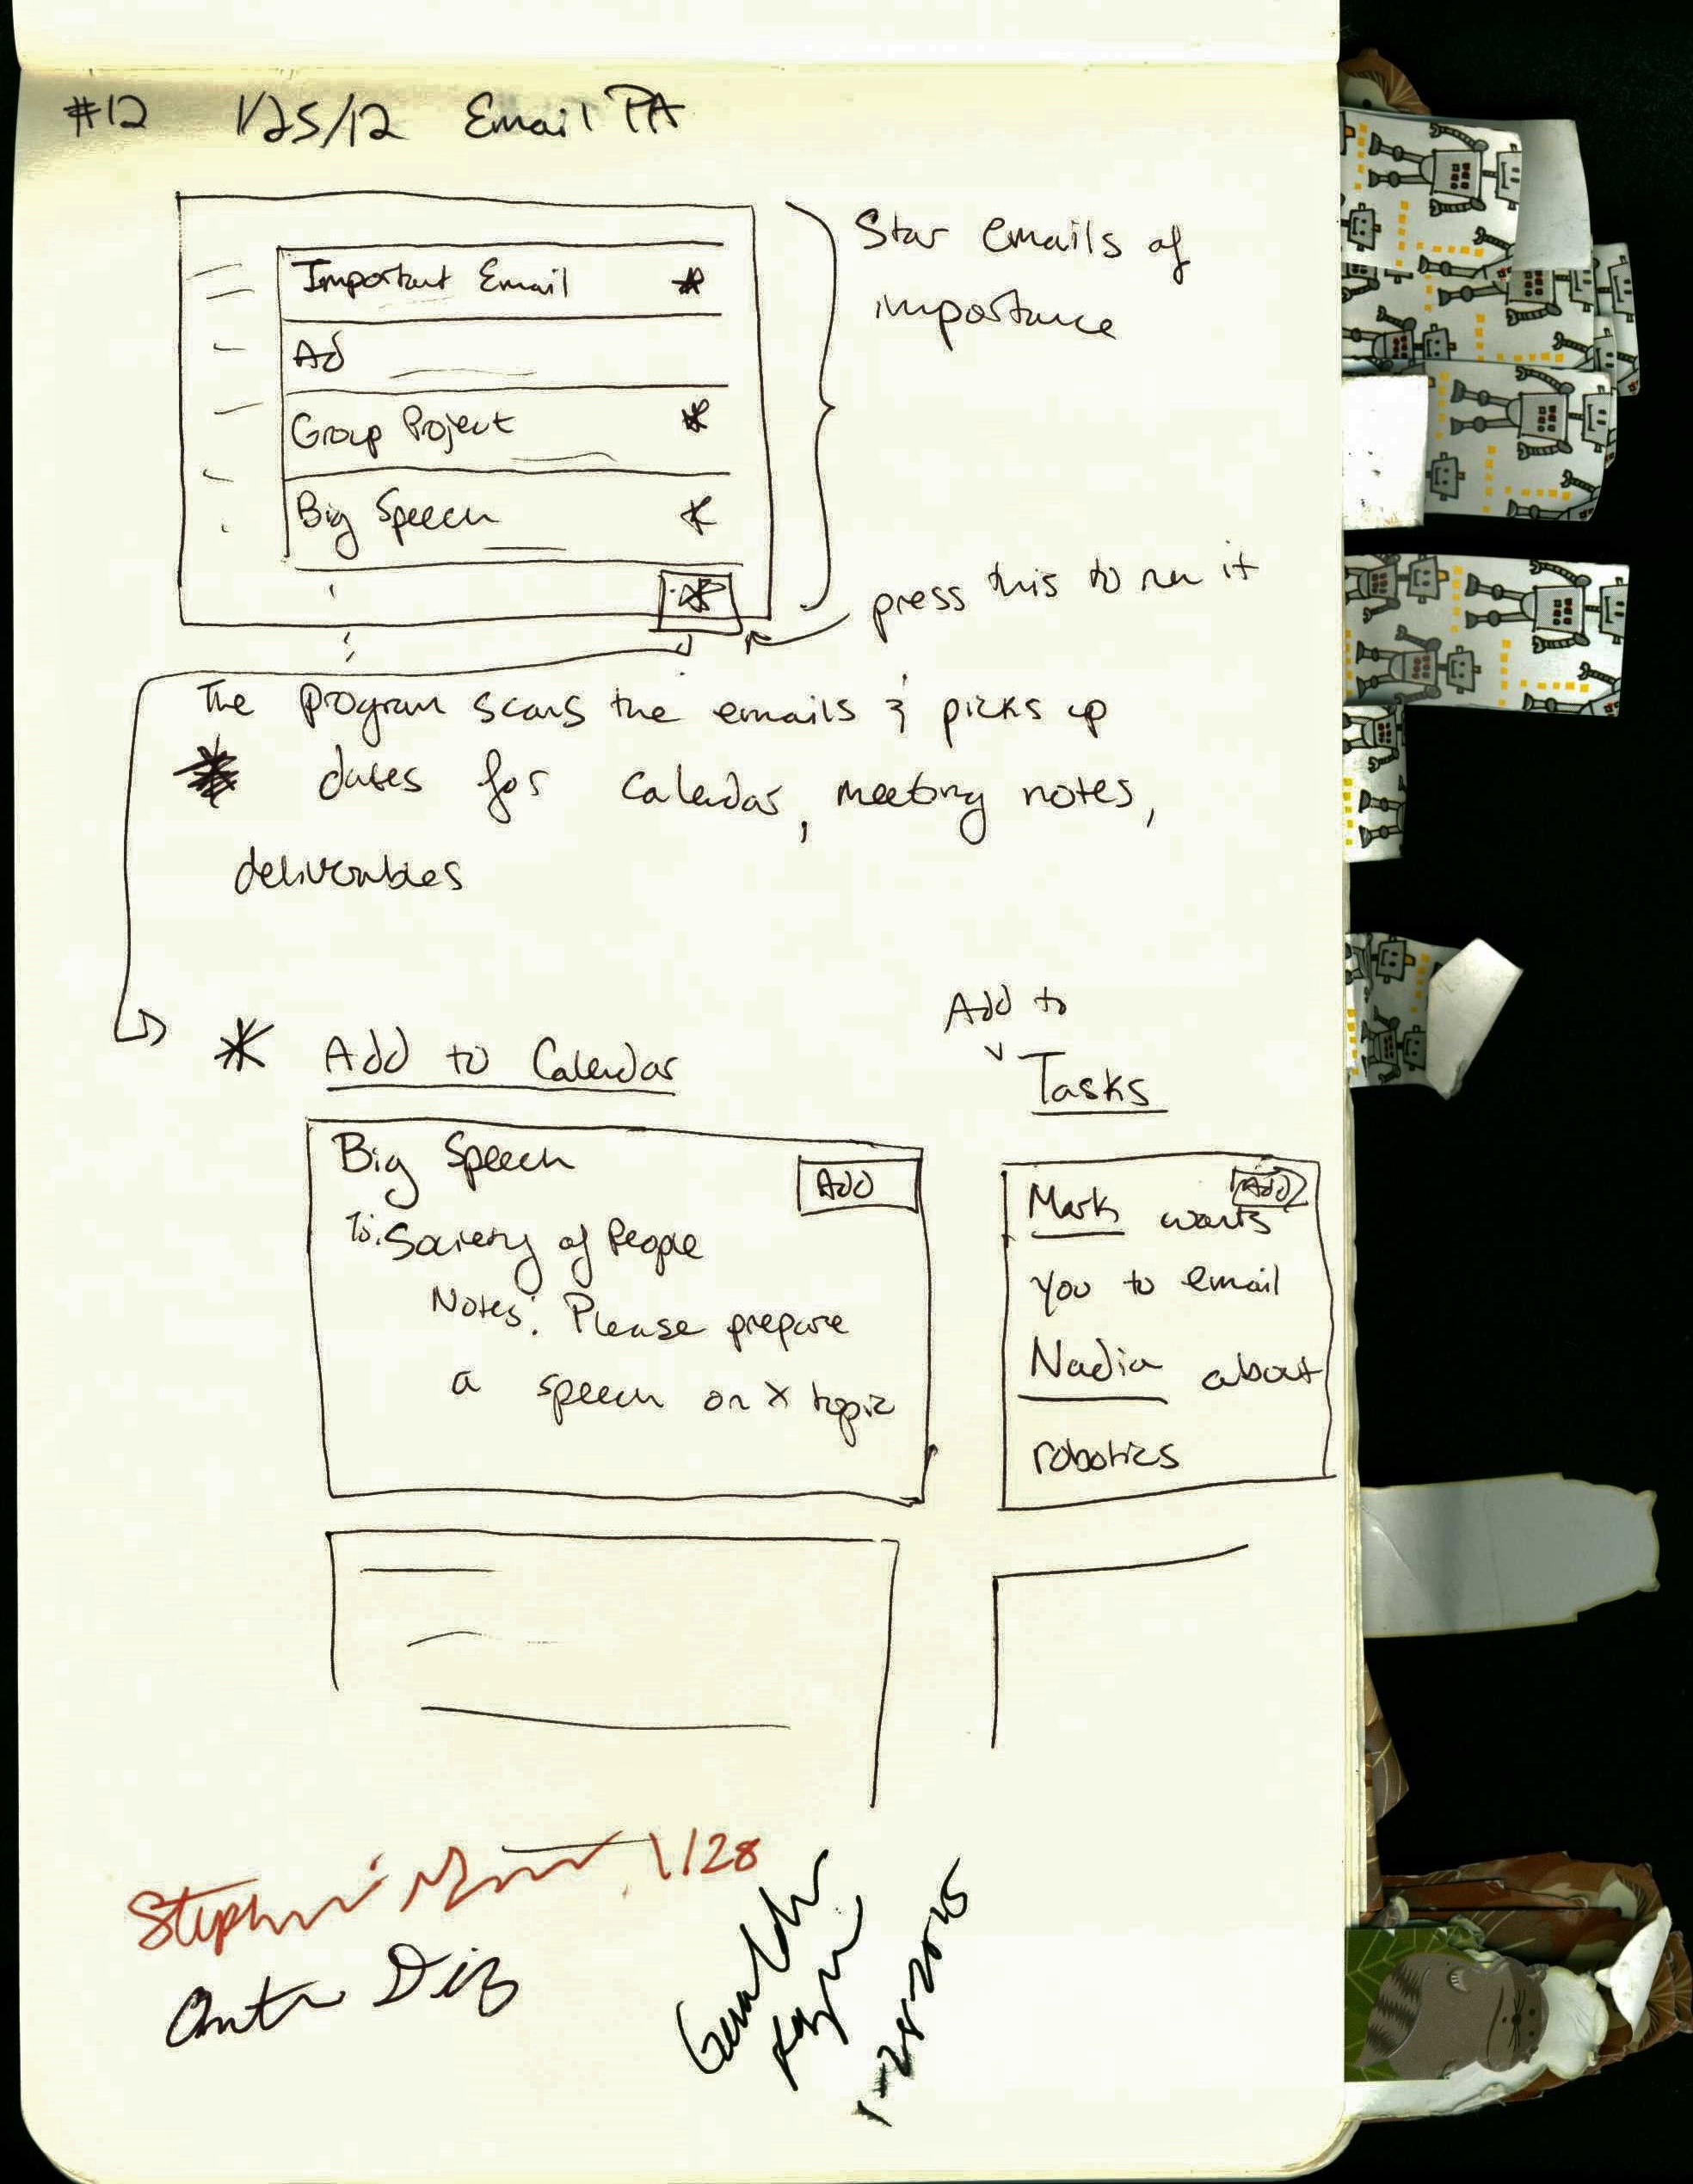 #12 1/25/12 Email PA
Important Email
Ad
Group Project
Big Speech
Star emails of
importance
press this to run it
The program scans the emails & picks up
dates for Calendar, meeting notes,
deliverables
Add to Calendar
Big Speech
Add
To: Society of People
Notes: Please prepare
a speech on X topic
Add to
Tasks
Add
Mark wants
you to email
Nadia about
robotics
1/28